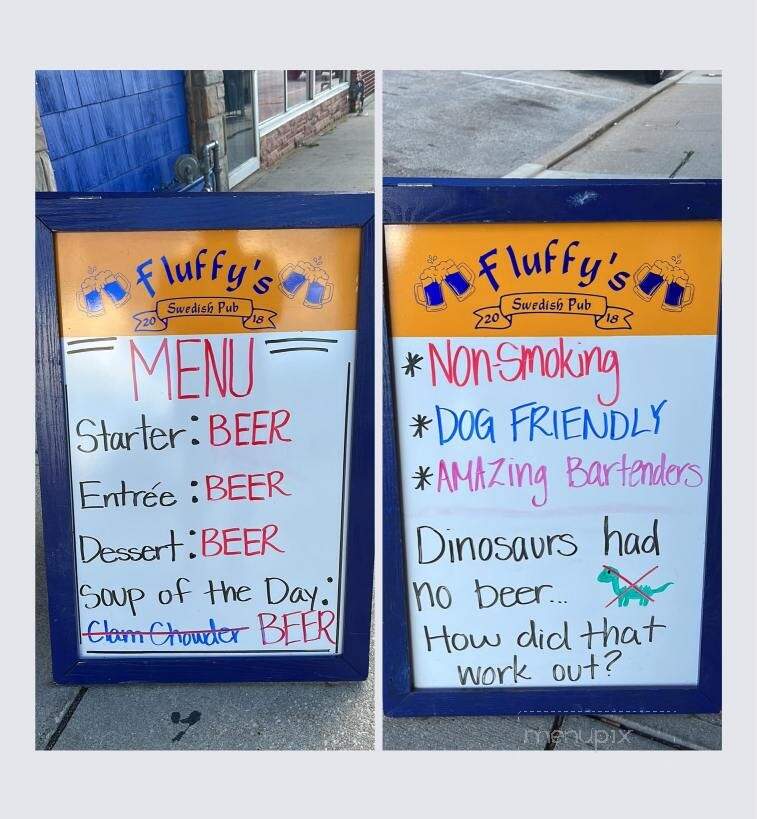 Fluffy's
Swedish Pub
20 18
MENU
Starter: BEER
Entrée: BEER
Dessert: BEER
Soup of the Day:
Clam Chowder BEER
Fluffy's
Swedish Pub
20 18
* Non-Smoking
* DOG FRIENDLY
* AMAZing Bartenders
Dinosaurs had
no beer...
How did that
work out?
menupix